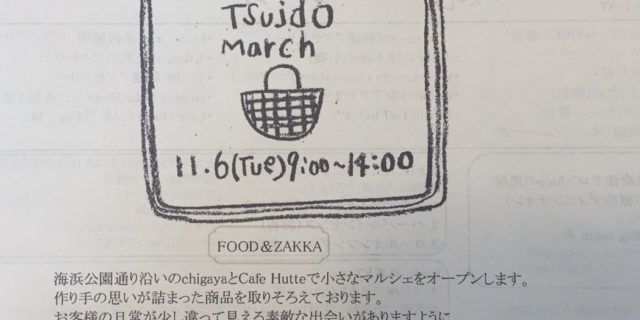 Tsujdo
March
11.6(Tue)9:00~14:00
FOOD&ZAKKA
海浜公園通り沿いのchigayaとCafe Hutteで小さなマルシェをオープンします。
作り手の思いが詰まった商品を取りそろえております。
お客様の日常が少し違って見える素敵な出会いがありますように